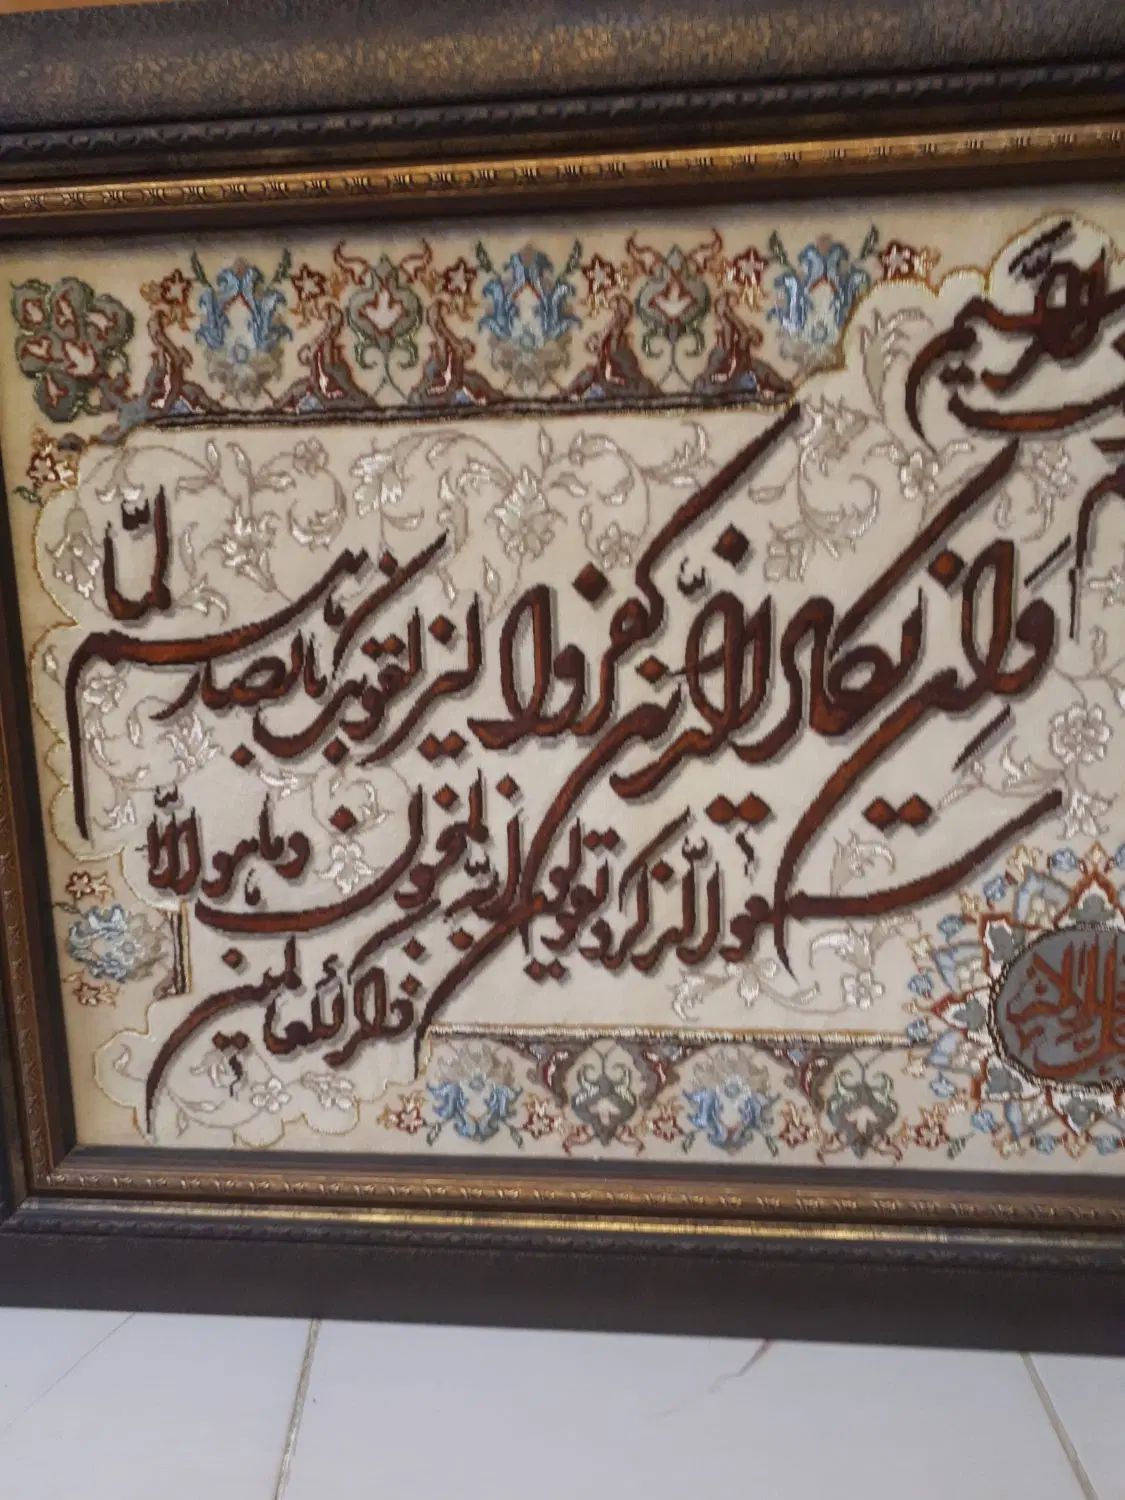 الرحیم
وان یکاد الذین کفروا لیزلقونک بابصارهم لمّا
سمعوا الذکر و یقولون انّه لمجنون و ما هو الّا
ذکر للعالمین